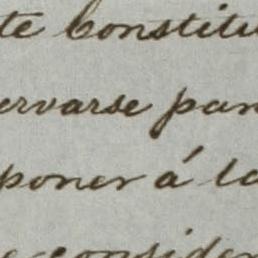 te Constitu
ervarse par
poner á la
e consider